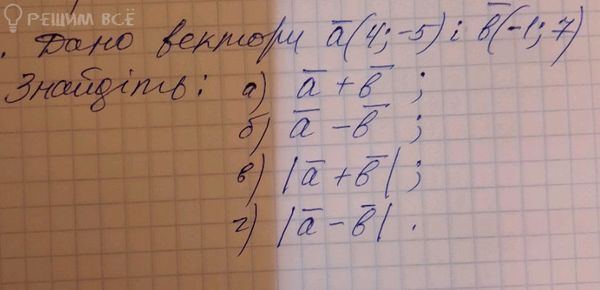 РЕШИМ ВСЁ
. Дано вектори a̅(4;-5) і b̅(-1;7)
Знайдіть: а) a̅ + b̅ ;
б) a̅ - b̅ ;
в) |a̅ + b̅| ;
г) |a̅ - b̅| .